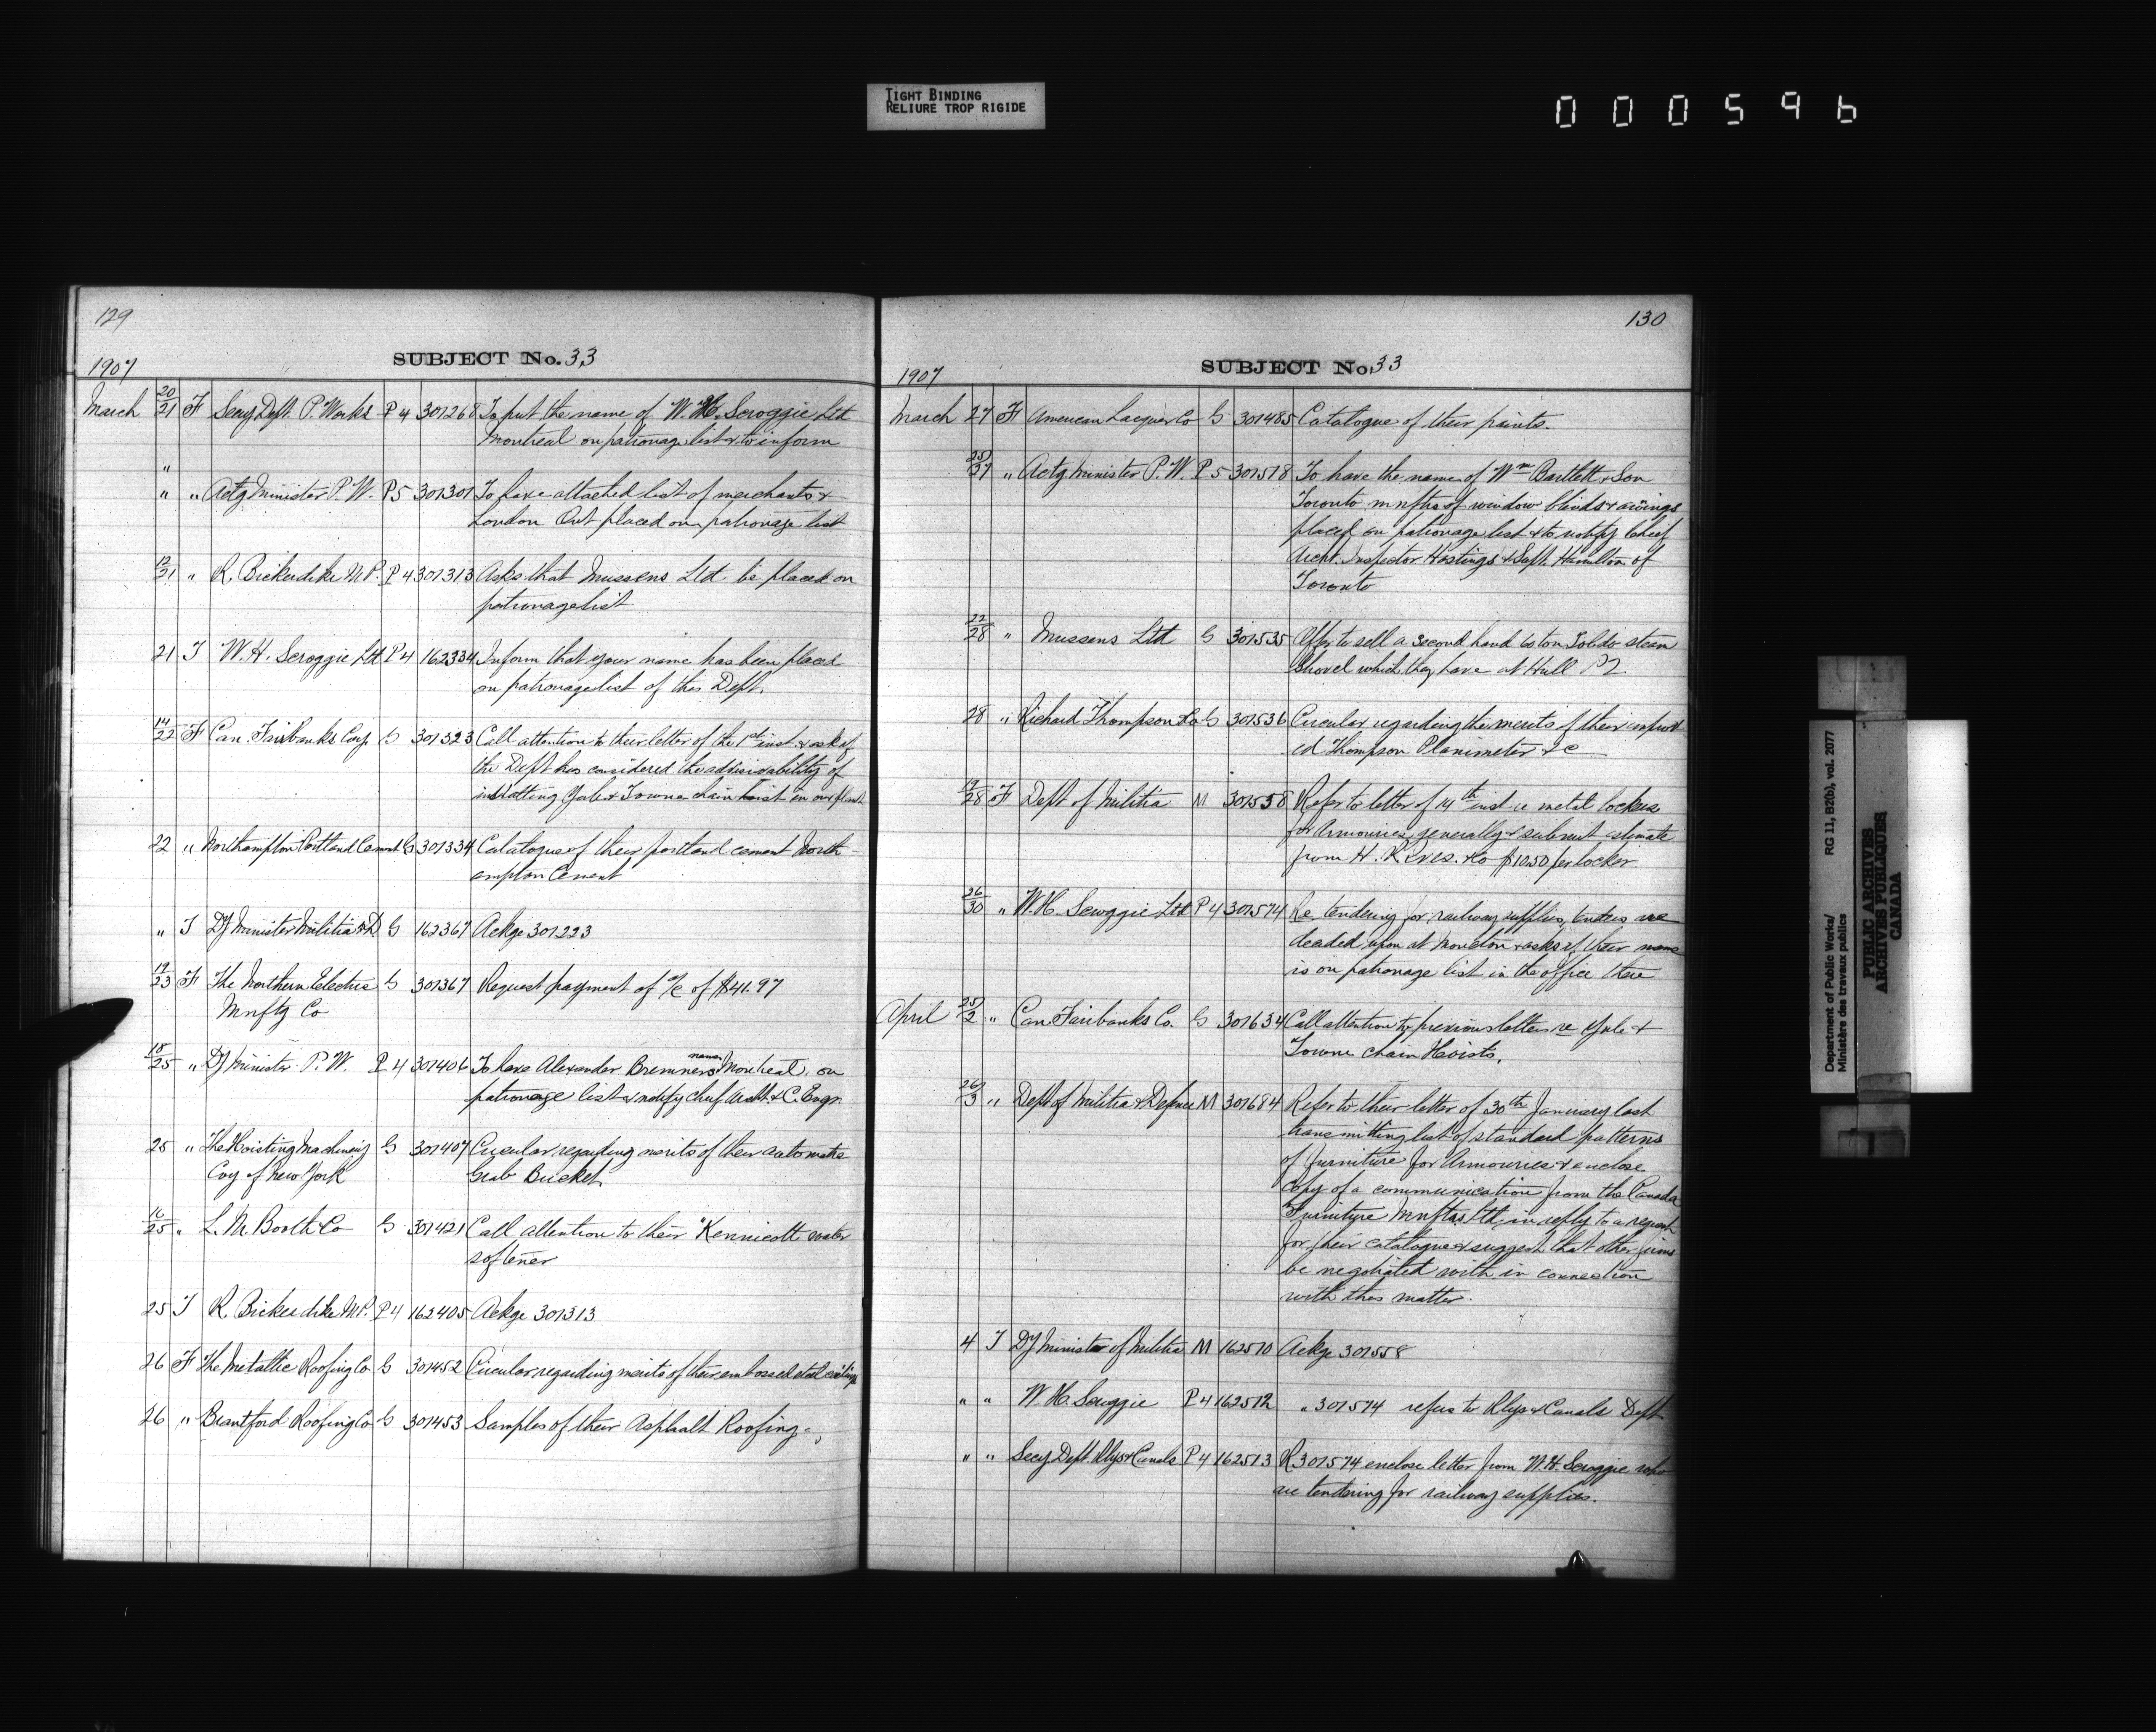 TIGHT BINDING
RELIURE TROP RIGIDE
000596
129
1907
SUBJECT No. 33
March 20/21 F Secy Dept. P. Works P 4 301268 To put the name of W. H. Scroggie Ltd
Montreal on patronage list & to inform
"
" " Actg Minister P. W. P 5 301301 To have attached list of merchants &
London Ont placed on patronage list
12/21 " R. Bickerdike M.P. P 4 301313 Asks that Mussens Ltd. be placed on
patronage list
21 T W. H. Scroggie Ltd P 4 162334 Inform that your name has been placed
on patronage list of this Dept.
14/22 F Can. Fairbanks Coy. G 301323 Call attention to their letter of the 1st inst. & ask if
the Dept has considered the advisability of
installing Yale & Towne chain hoist in our plant
22 " Northampton Portland Cement G 301334 Catalogue of their portland cement North-
ampton Cement
" T Dy Minister Militia & D. G 162367 Ackge 301223
19/23 F The Northern Electric G 301367 Request payment of a/c of $41.97
Mnftg Co
18/25 " Dy Minister P. W. P 4 301406 To have Alexander Bremners name Montreal, on
patronage list & notify chief Archt. & C. Engr.
25 " The Hoisting Machinery G 301407 Circular regarding merits of their automatic
Coy of New York Grab Bucket.
16/25 " L. M. Booth & Co G 301421 Call attention to their "Kennicott water
softener
25 T R. Bickerdike M.P. P 4 162405 Ackge 301313
26 F The Metallic Roofing Co. G 301452 Circular regarding merits of their embossed steel ceilings
26 " Brantford Roofing Co G 301453 Samples of their Asphalt Roofing.
130
1907
SUBJECT No. 33
March 27 F American Lacquer Co G 301485 Catalogue of their paints.
25/27 " Actg Minister P. W. P 5 301518 To have the name of Wm Bartlett & Son
Toronto mnftrs of window blinds & awings
placed on patronage list & to notify Chief
Archt. Inspector Hastings & Supt. Hamilton of
Toronto
22/28 " Mussens Ltd G 301535 Offer to sell a second hand 60 ton Toledo steam
Shovel which they have at Hull P2.
28 " Richard Thompson Co G 301536 Circular regarding the merits of their improv
ed Thompson Planimeter &c
19/28 F Dept of Militia M 301558 Refer to letter of 14th inst re metal lockers
for Armouries generally & submit estimate
from H. R. Ives & Co $10.50 per locker
26/30 " W. H. Scroggie Ltd P 4 301574 Re tendering for railway supplies, tenders are
decided upon at Moncton & asks if their name
is on patronage list in the office there
April 25/2 " Can Fairbanks Co. G 301634 Call attention to previous letters re Yale &
Towne chain Hoists.
26/3 " Dept of Militia & Defence M 301684 Refer to their letter of 30th January last
transmitting list of standard patterns
of furniture for Armouries & enclose
copy of a communication from the Canada
Furniture Mnftrs Ltd, in reply to a request
for their catalogue & suggest that other firms
be negotiated with in connection
with this matter.
4 T Dy Minister of Militia M 162510 Ackge 301558
" " W. H. Scroggie P 4 162512 " 301574 refers to Rlys & Canals Dept
" " Secy Dept. Rlys & Canals P 4 162513 R 301574 enclose letter from W. H. Scroggie who
are tendering for railway supplies.
Department of Public Works/
Ministère des travaux publics
RG 11, B2(b), vol. 2077
PUBLIC ARCHIVES
ARCHIVES PUBLIQUES
CANADA